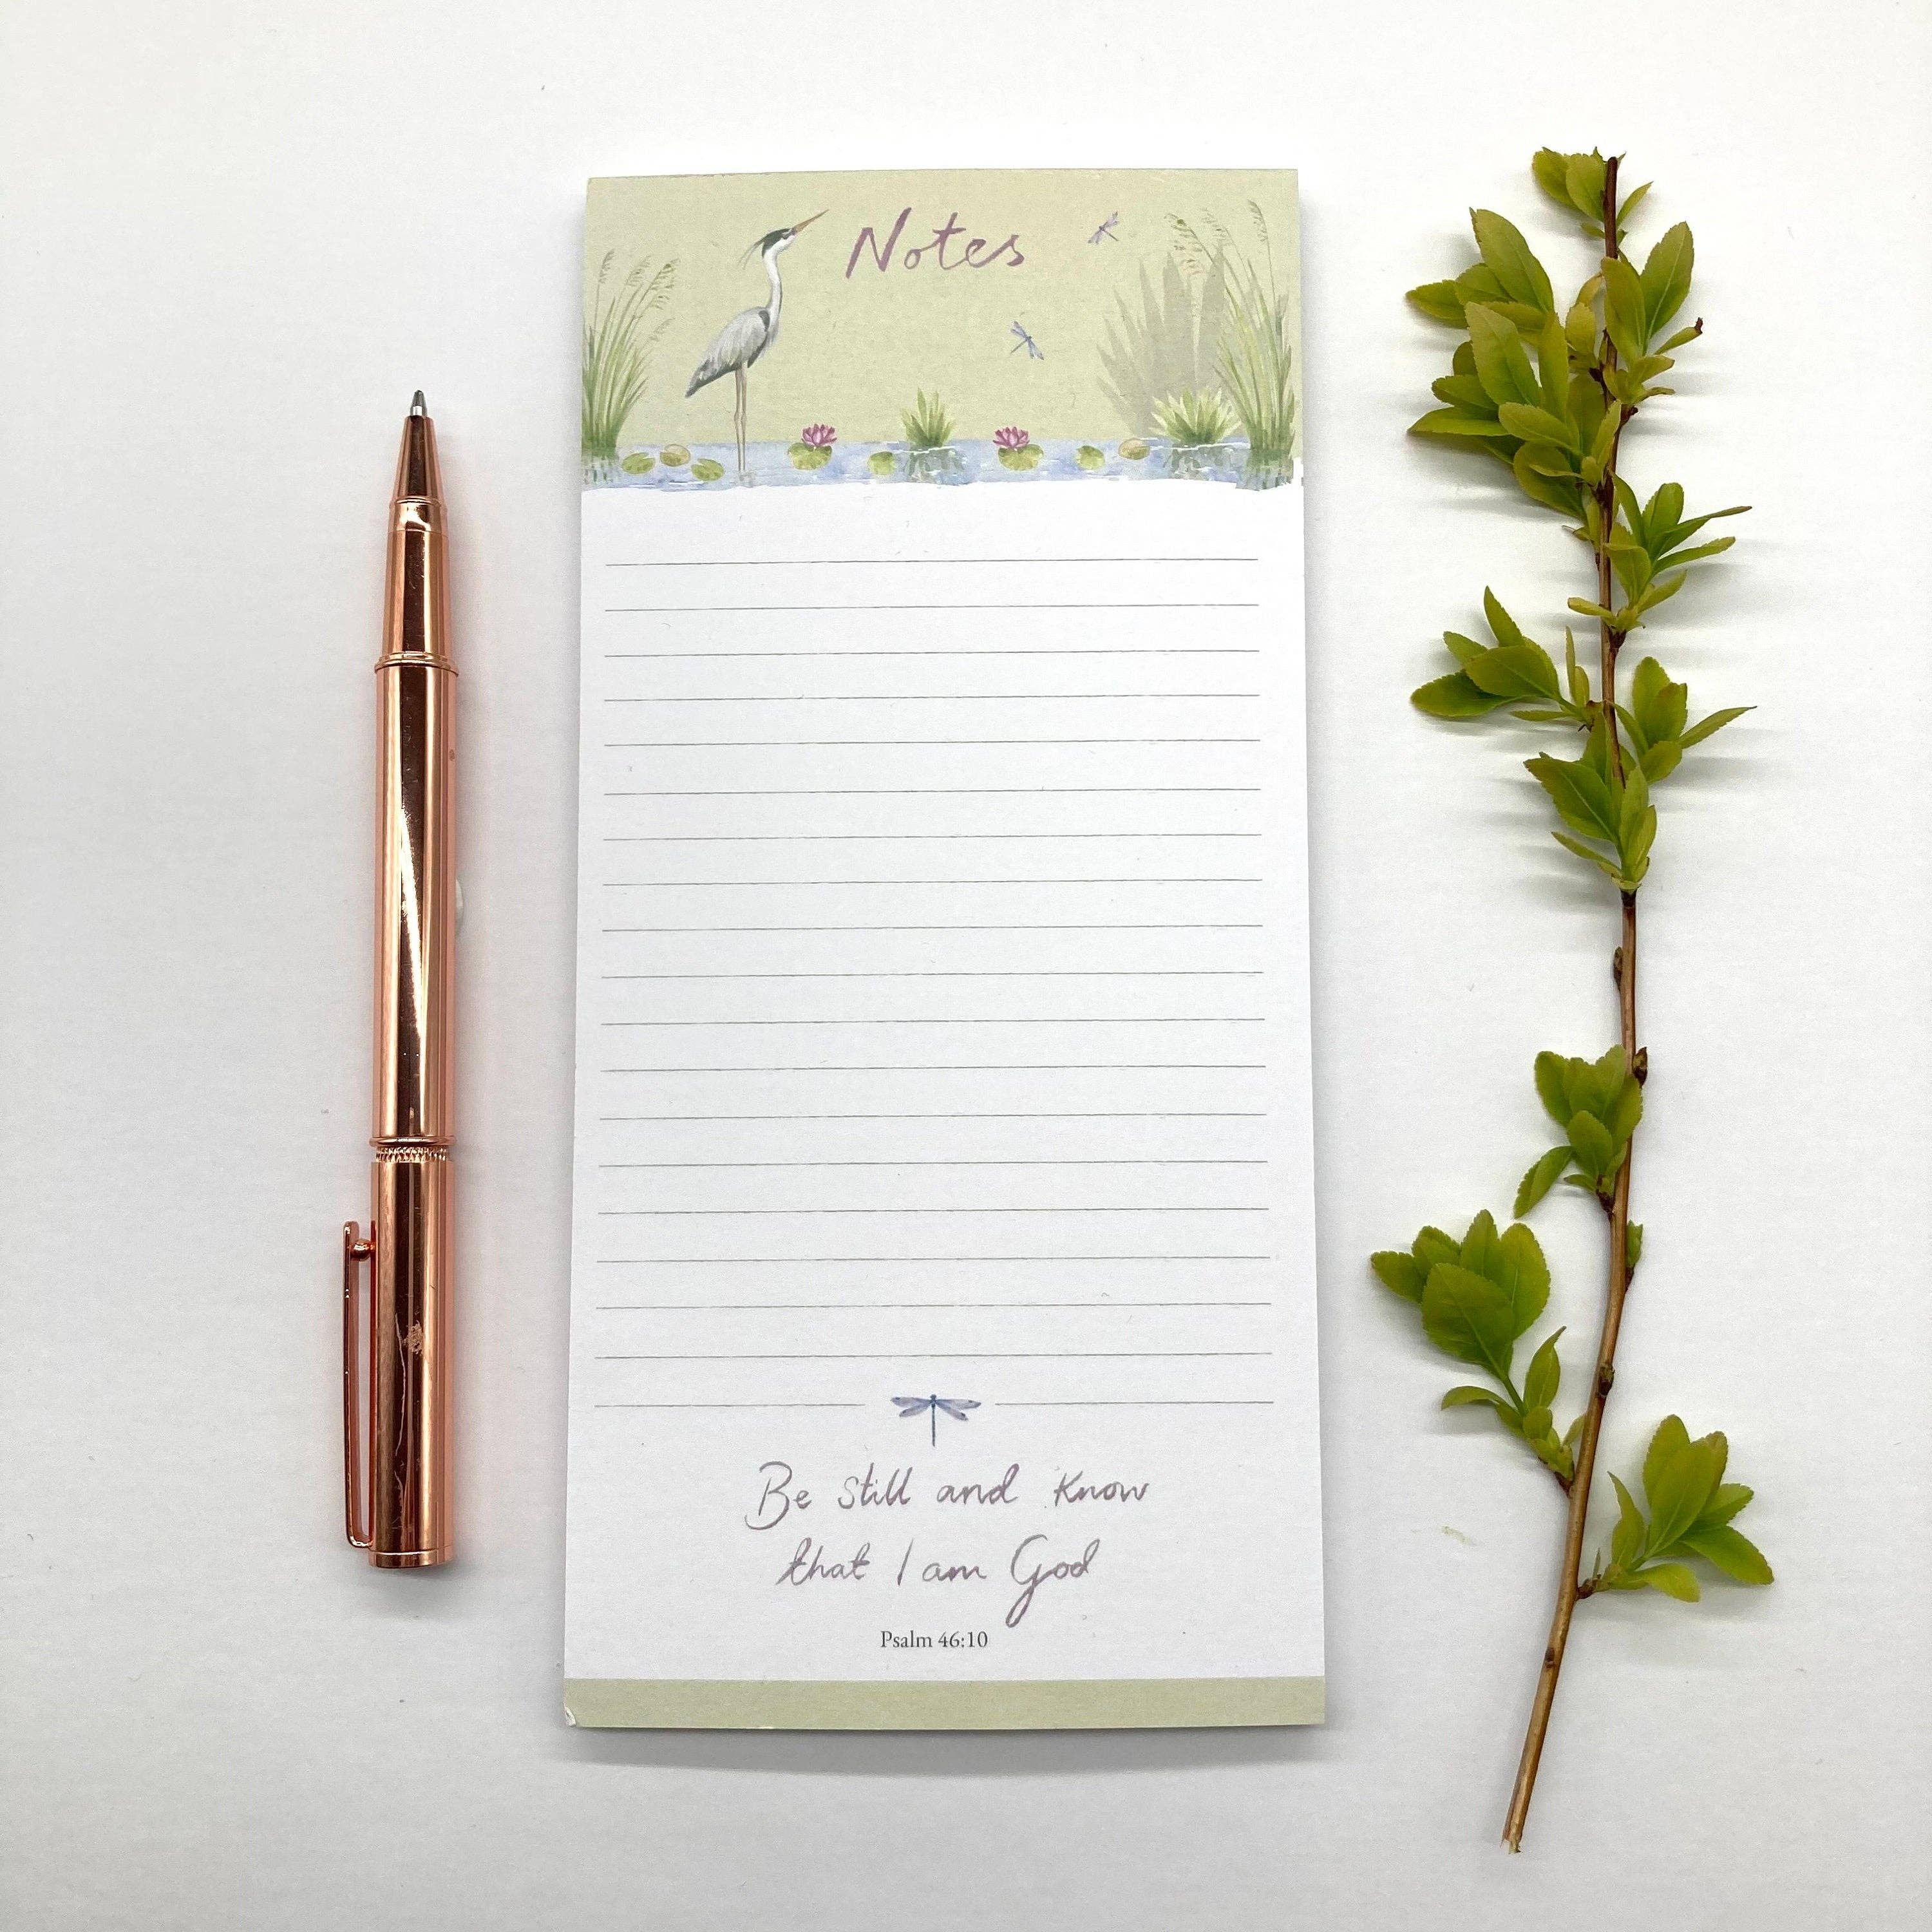 Notes
Be still and know
that I am God
Psalm 46:10